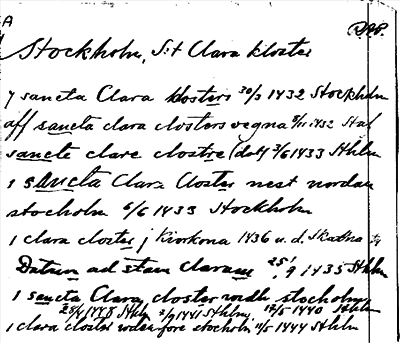 A
Stockholm, S:t Clara kloster
j sancta Clara klosters 30/3 1432 Stockholm
aff sancta clara closters vegna 1432 Sthl
sancte clare clostre (dat) 3/6 1433 Sthlm
i sancta Clara Closter nest nordan
stocholm 6/6 1433 Stockholm
i clara closter j 1436 u. d.
Datum ad stam Claram 1435 Sthlm
i sancta Clara closter widh stocholm
1441 Sthlm, 1440 Sthlm
i clara closter fore stocholm 1444 Sthlm